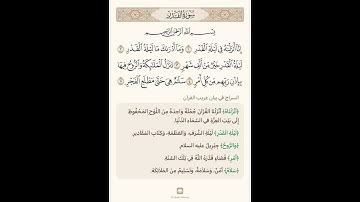 سُورَةُ القَدْرِ
بِسْمِ اللَّهِ الرَّحْمَٰنِ الرَّحِيمِ
إِنَّا أَنزَلْنَاهُ فِي لَيْلَةِ الْقَدْرِ ١ وَمَا أَدْرَاكَ مَا لَيْلَةُ الْقَدْرِ ٢
لَيْلَةُ الْقَدْرِ خَيْرٌ مِّنْ أَلْفِ شَهْرٍ ٣ تَنَزَّلُ الْمَلَائِكَةُ وَالرُّوحُ فِيهَا
بِإِذْنِ رَبِّهِم مِّن كُلِّ أَمْرٍ ٤ سَلَامٌ هِيَ حَتَّىٰ مَطْلَعِ الْفَجْرِ ٥
السراج في بيان غريب القرآن
﴿أَنزَلْنَاهُ﴾ أَنْزَلْنَا القُرْآنَ جُمْلَةً وَاحِدَةً مِنَ اللَّوْحِ المَحْفُوظِ
إِلَى بَيْتِ العِزَّةِ فِي السَّمَاءِ الدُّنْيَا.
﴿لَيْلَةِ الْقَدْرِ﴾ لَيْلَةِ الشَّرَفِ، وَالعَظَمَةِ، وَكِتَابِ المَقَادِيرِ.
﴿وَالرُّوحُ﴾ جِبْرِيلُ عليه السلام.
﴿أَمْرٍ﴾ قَضَاءٍ قَدَّرَهُ اللَّهُ فِي تِلْكَ السَّنَةِ.
﴿سَلَامٌ﴾ أَمْنٌ، وَسَلَامَةٌ، وَتَسْلِيمٌ مِنَ المَلَائِكَةِ.